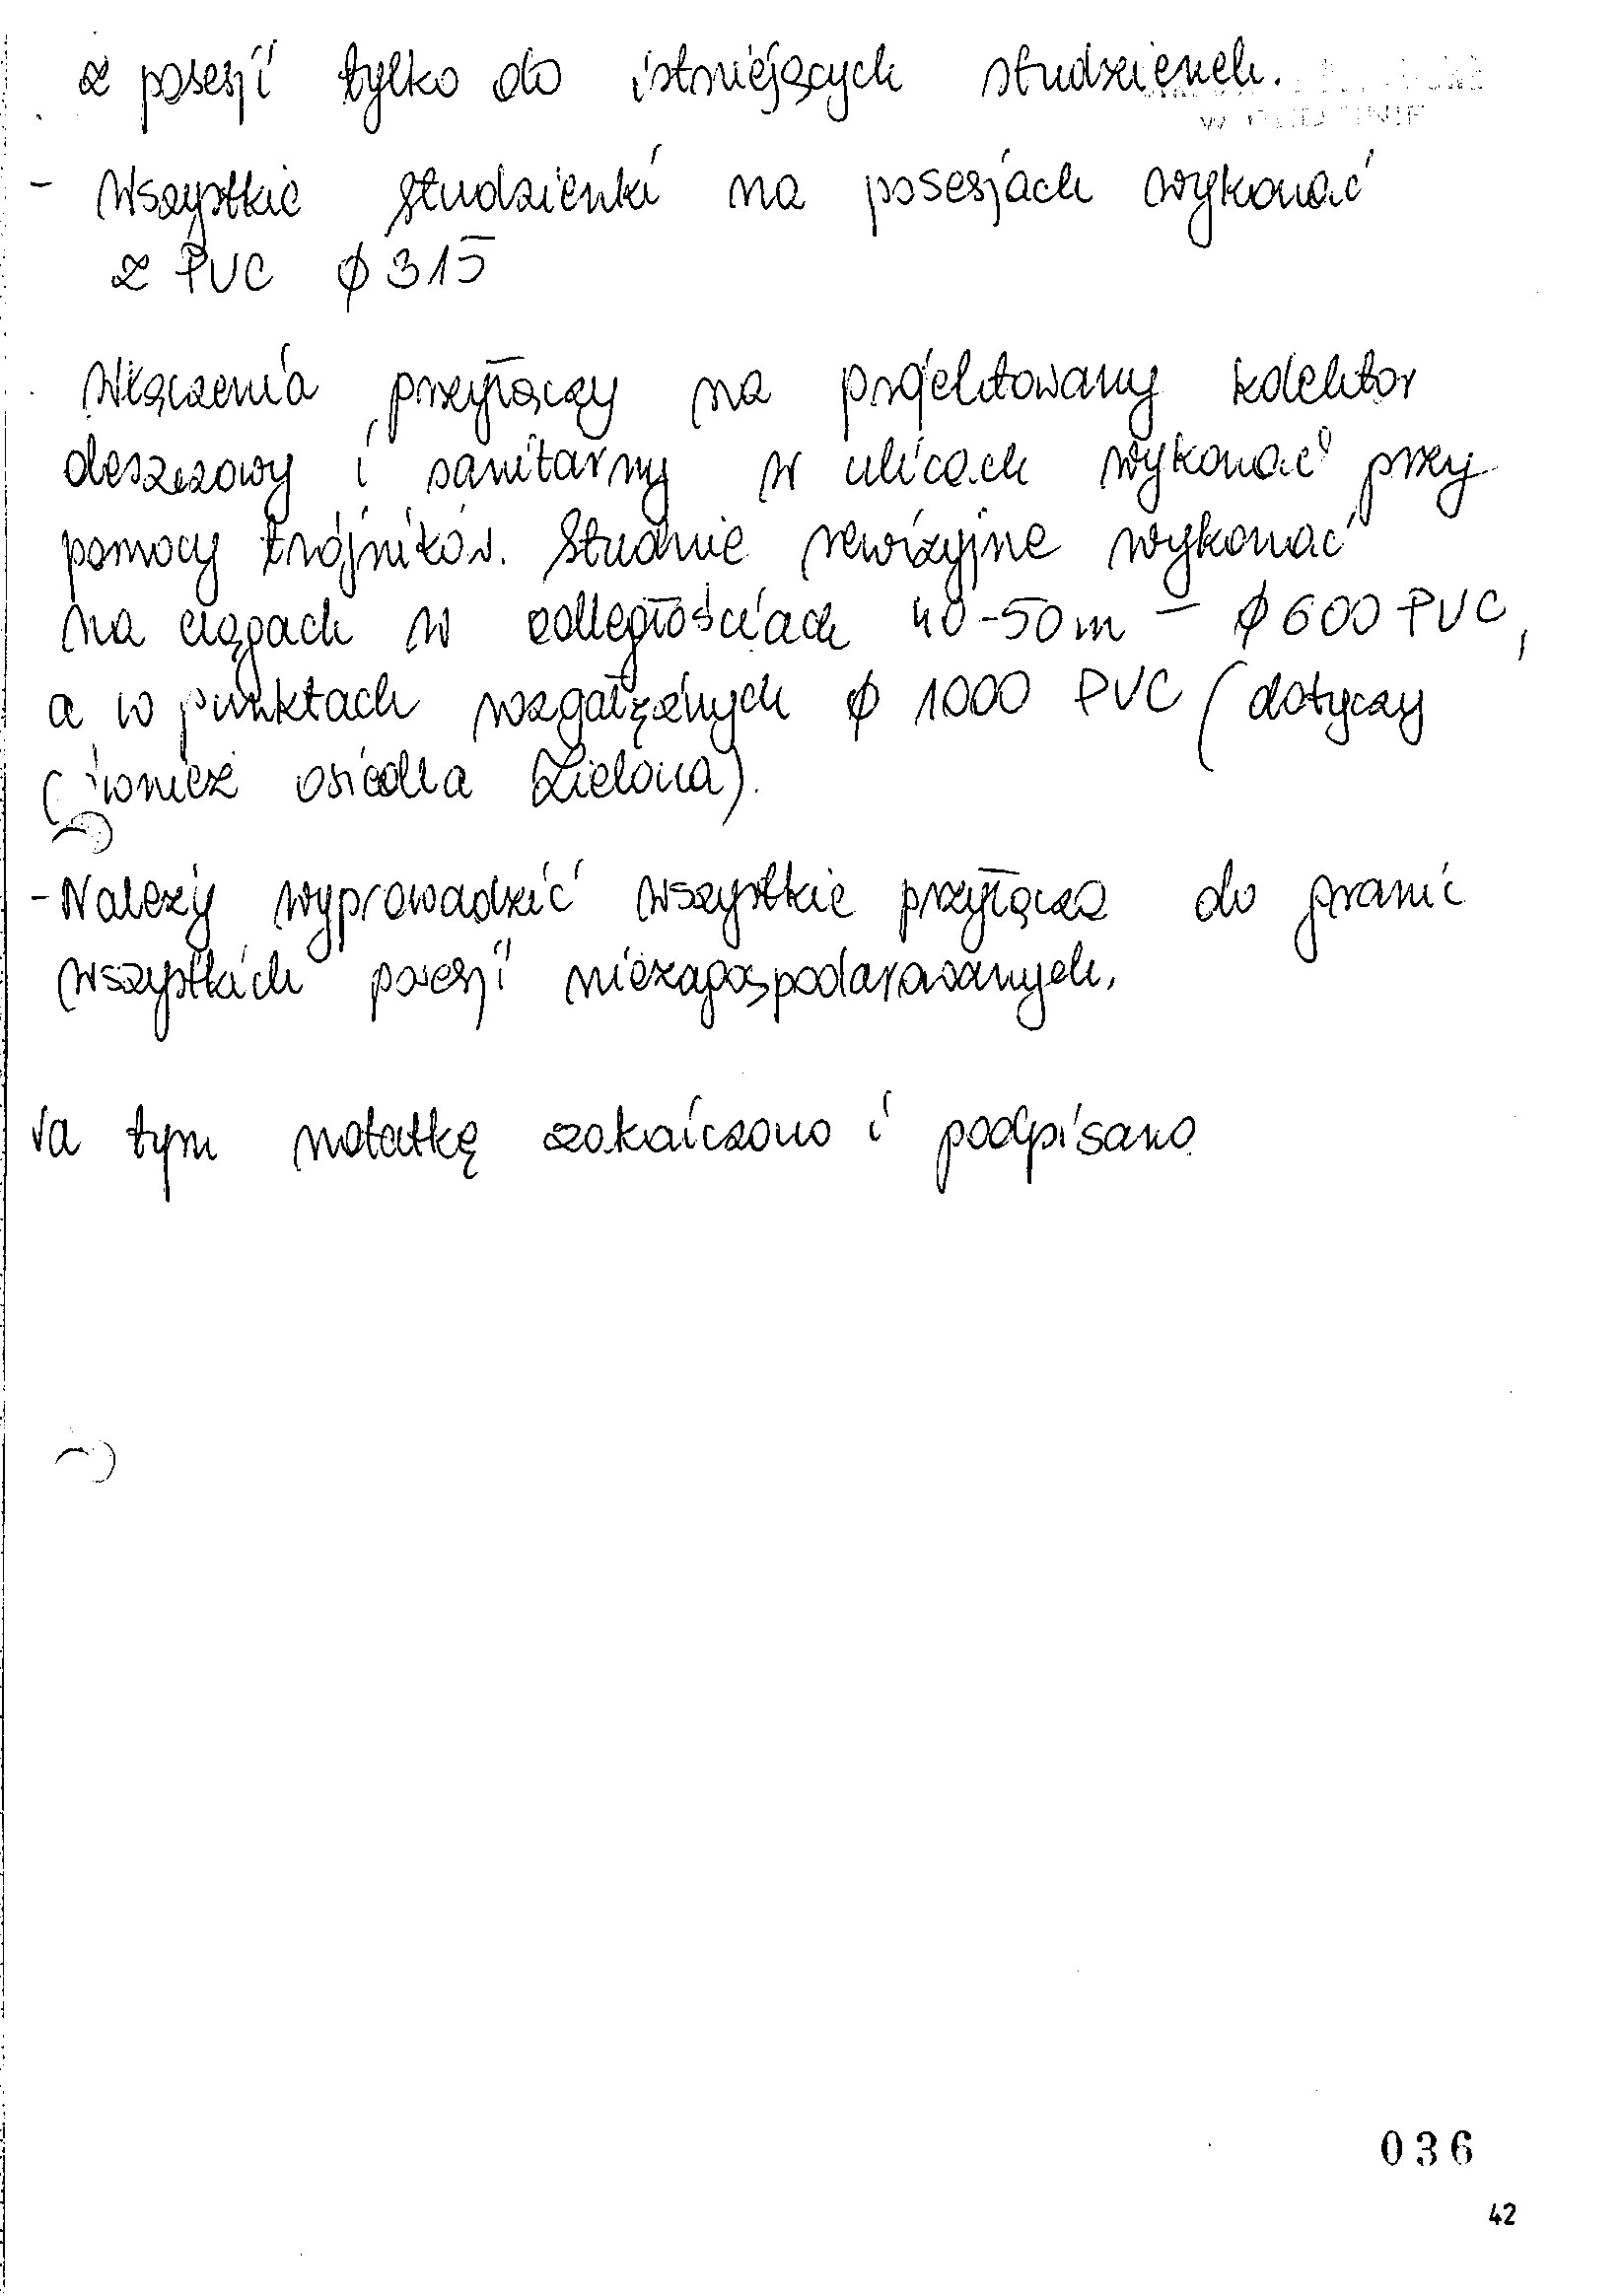 z posesji tylko do istniejących studzienek.
- Wszystkie studzienki na posesjach wykonać
z PVC ϕ 315
Włączenia przyłączy na projektowany kolektor
deszczowy i sanitarny w ulicach wykonać przy
pomocy trójników. Studnie rewizyjne wykonać
na ciągach w odległościach 40-50m - ϕ 600 PVC,
a w punktach rozgałęźnych ϕ 1000 PVC (dotyczy
również osiedla Zielona).
- Należy wyprowadzić wszystkie przyłącza do granic
wszystkich posesji niezagospodarowanych.
Na tym notatkę zakończono i podpisano
036
42